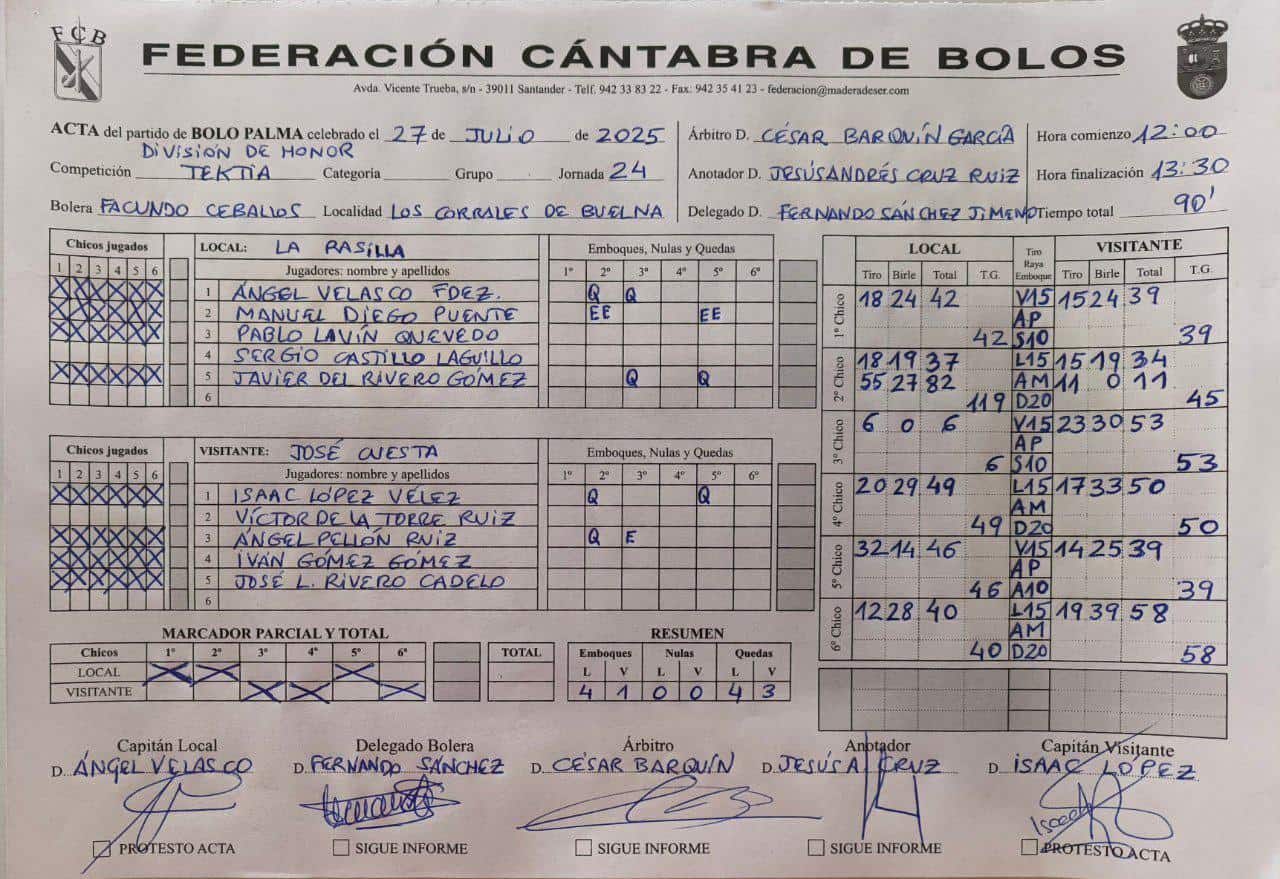 FCB
FEDERACIÓN CÁNTABRA DE BOLOS
Avda. Vicente Trueba, s/n - 39011 Santander - Telf. 942 33 83 22 - Fax: 942 35 41 23 - federacion@maderadeser.com
ACTA del partido de BOLO PALMA celebrado el 27 de JULIO de 2025
DIVISIÓN DE HONOR
Competición TEKTIA Categoría Grupo Jornada 24
Bolera FACUNDO CEBALLOS Localidad LOS CORRALES DE BUELNA
Árbitro D. CÉSAR BARQUÍN GARCÍA Hora comienzo 12:00
Anotador D. JESÚS ANDRÉS CRUZ RUIZ Hora finalización 13:30
Delegado D. FERNANDO SÁNCHEZ JIMENO Tiempo total 90'
Chicos jugados LOCAL: LA RASILLA Emboques, Nulas y Quedas
1 2 3 4 5 6 Jugadores: nombre y apellidos 1º 2º 3º 4º 5º 6º
X X X X X X 1 ÁNGEL VELASCO FDEZ. Q Q
X X X X X X 2 MANUEL DIEGO PUENTE EE EE
X X X X X X 3 PABLO LAVÍN QUEVEDO
4 SERGIO CASTILLO LAGUILLO
X X X X X X 5 JAVIER DEL RIVERO GÓMEZ Q Q
6
Chicos jugados VISITANTE: JOSÉ CUESTA Emboques, Nulas y Quedas
1 2 3 4 5 6 Jugadores: nombre y apellidos 1º 2º 3º 4º 5º 6º
X X X X X X 1 ISAAC LÓPEZ VÉLEZ Q Q
2 VÍCTOR DE LA TORRE RUIZ
X X X X X X 3 ÁNGEL PELLÓN RUIZ Q E
X X X X X X 4 IVÁN GÓMEZ GÓMEZ
X X X X X X 5 JOSÉ L. RIVERO CADELO
6
LOCAL Tiro Raya Emboque VISITANTE
Tiro Birle Total T.G. Tiro Birle Total T.G.
1º Chico 18 24 42 V15 15 24 39
AP
42 S10 39
2º Chico 18 19 37 L15 15 19 34
55 27 82 AM 11 0 11
119 D20 45
3º Chico 6 0 6 V15 23 30 53
AP
6 S10 53
4º Chico 20 29 49 L15 17 33 50
AM
49 D20 50
5º Chico 32 14 46 V15 14 25 39
AP
46 A10 39
6º Chico 12 28 40 L15 19 39 58
AM
40 D20 58
MARCADOR PARCIAL Y TOTAL
Chicos 1º 2º 3º 4º 5º 6º TOTAL
LOCAL X X X
VISITANTE X X X
RESUMEN
Emboques Nulas Quedas
L V L V L V
4 1 0 0 4 3
Capitán Local Delegado Bolera Árbitro Anotador Capitán Visitante
D. ÁNGEL VELASCO D. FERNANDO SÁNCHEZ D. CÉSAR BARQUÍN D. JESÚS A CRUZ D. ISAAC LÓPEZ
PROTESTO ACTA SIGUE INFORME SIGUE INFORME SIGUE INFORME PROTESTO ACTA